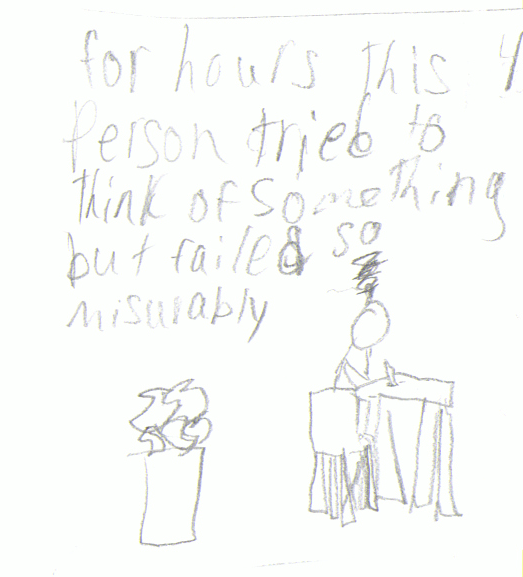 for hours this 4
Person tried to
think of something
but failed so
misurably